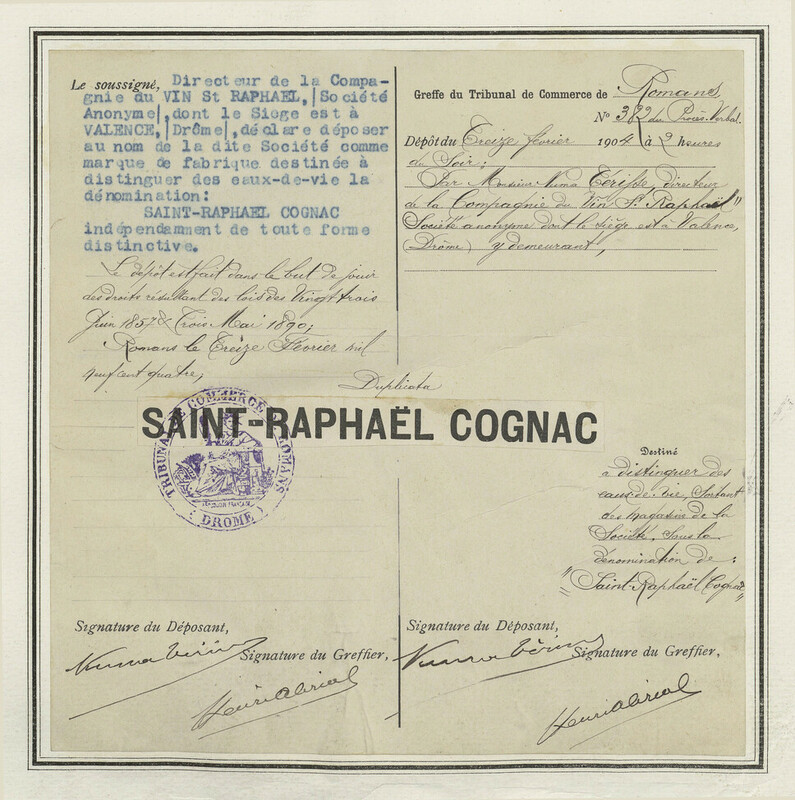 Le soussigné, Directeur de la Compa-
gnie du VIN St RAPHAEL,|Société
Anonyme|,dont le Siege est à
VALENCE,|Drôme|,déclare déposer
au nom de la dite Société comme
marque de fabrique destinée à
distinguer des eaux-de-vie la
dénomination:
SAINT-RAPHAEL COGNAC
indépendamment de toute forme
distinctive.
Le dépôt est fait dans le but de jouir
des droits résultant des lois des Vingt trois
Juin 1857 & Trois Mai 1890;
Romans le Treize Février mil
neuf cent quatre;
Greffe du Tribunal de Commerce de Romans,
N° 382 du Procès-Verbal
Dépôt du Treize février 1904 à 2 heures
du Soir;
Par Monsieur Numa
directeur
de la Compagnie du Vin St Raphaël"
Société anonyme dont le siège est à Valence,
(Drôme) y demeurant,
Duplicata
SAINT-RAPHAËL COGNAC
TRIBUNAL DE COMMERCE ROMANS
(DROME)
Destiné
à distinguer des
eaux-de-vie, Sortant
des magasins de la
Société, sous la
dénomination de:
"Saint-Raphaël Cognac"
Signature du Déposant,
Numa
Signature du Greffier,
Signature du Déposant,
Numa
Signature du Greffier,